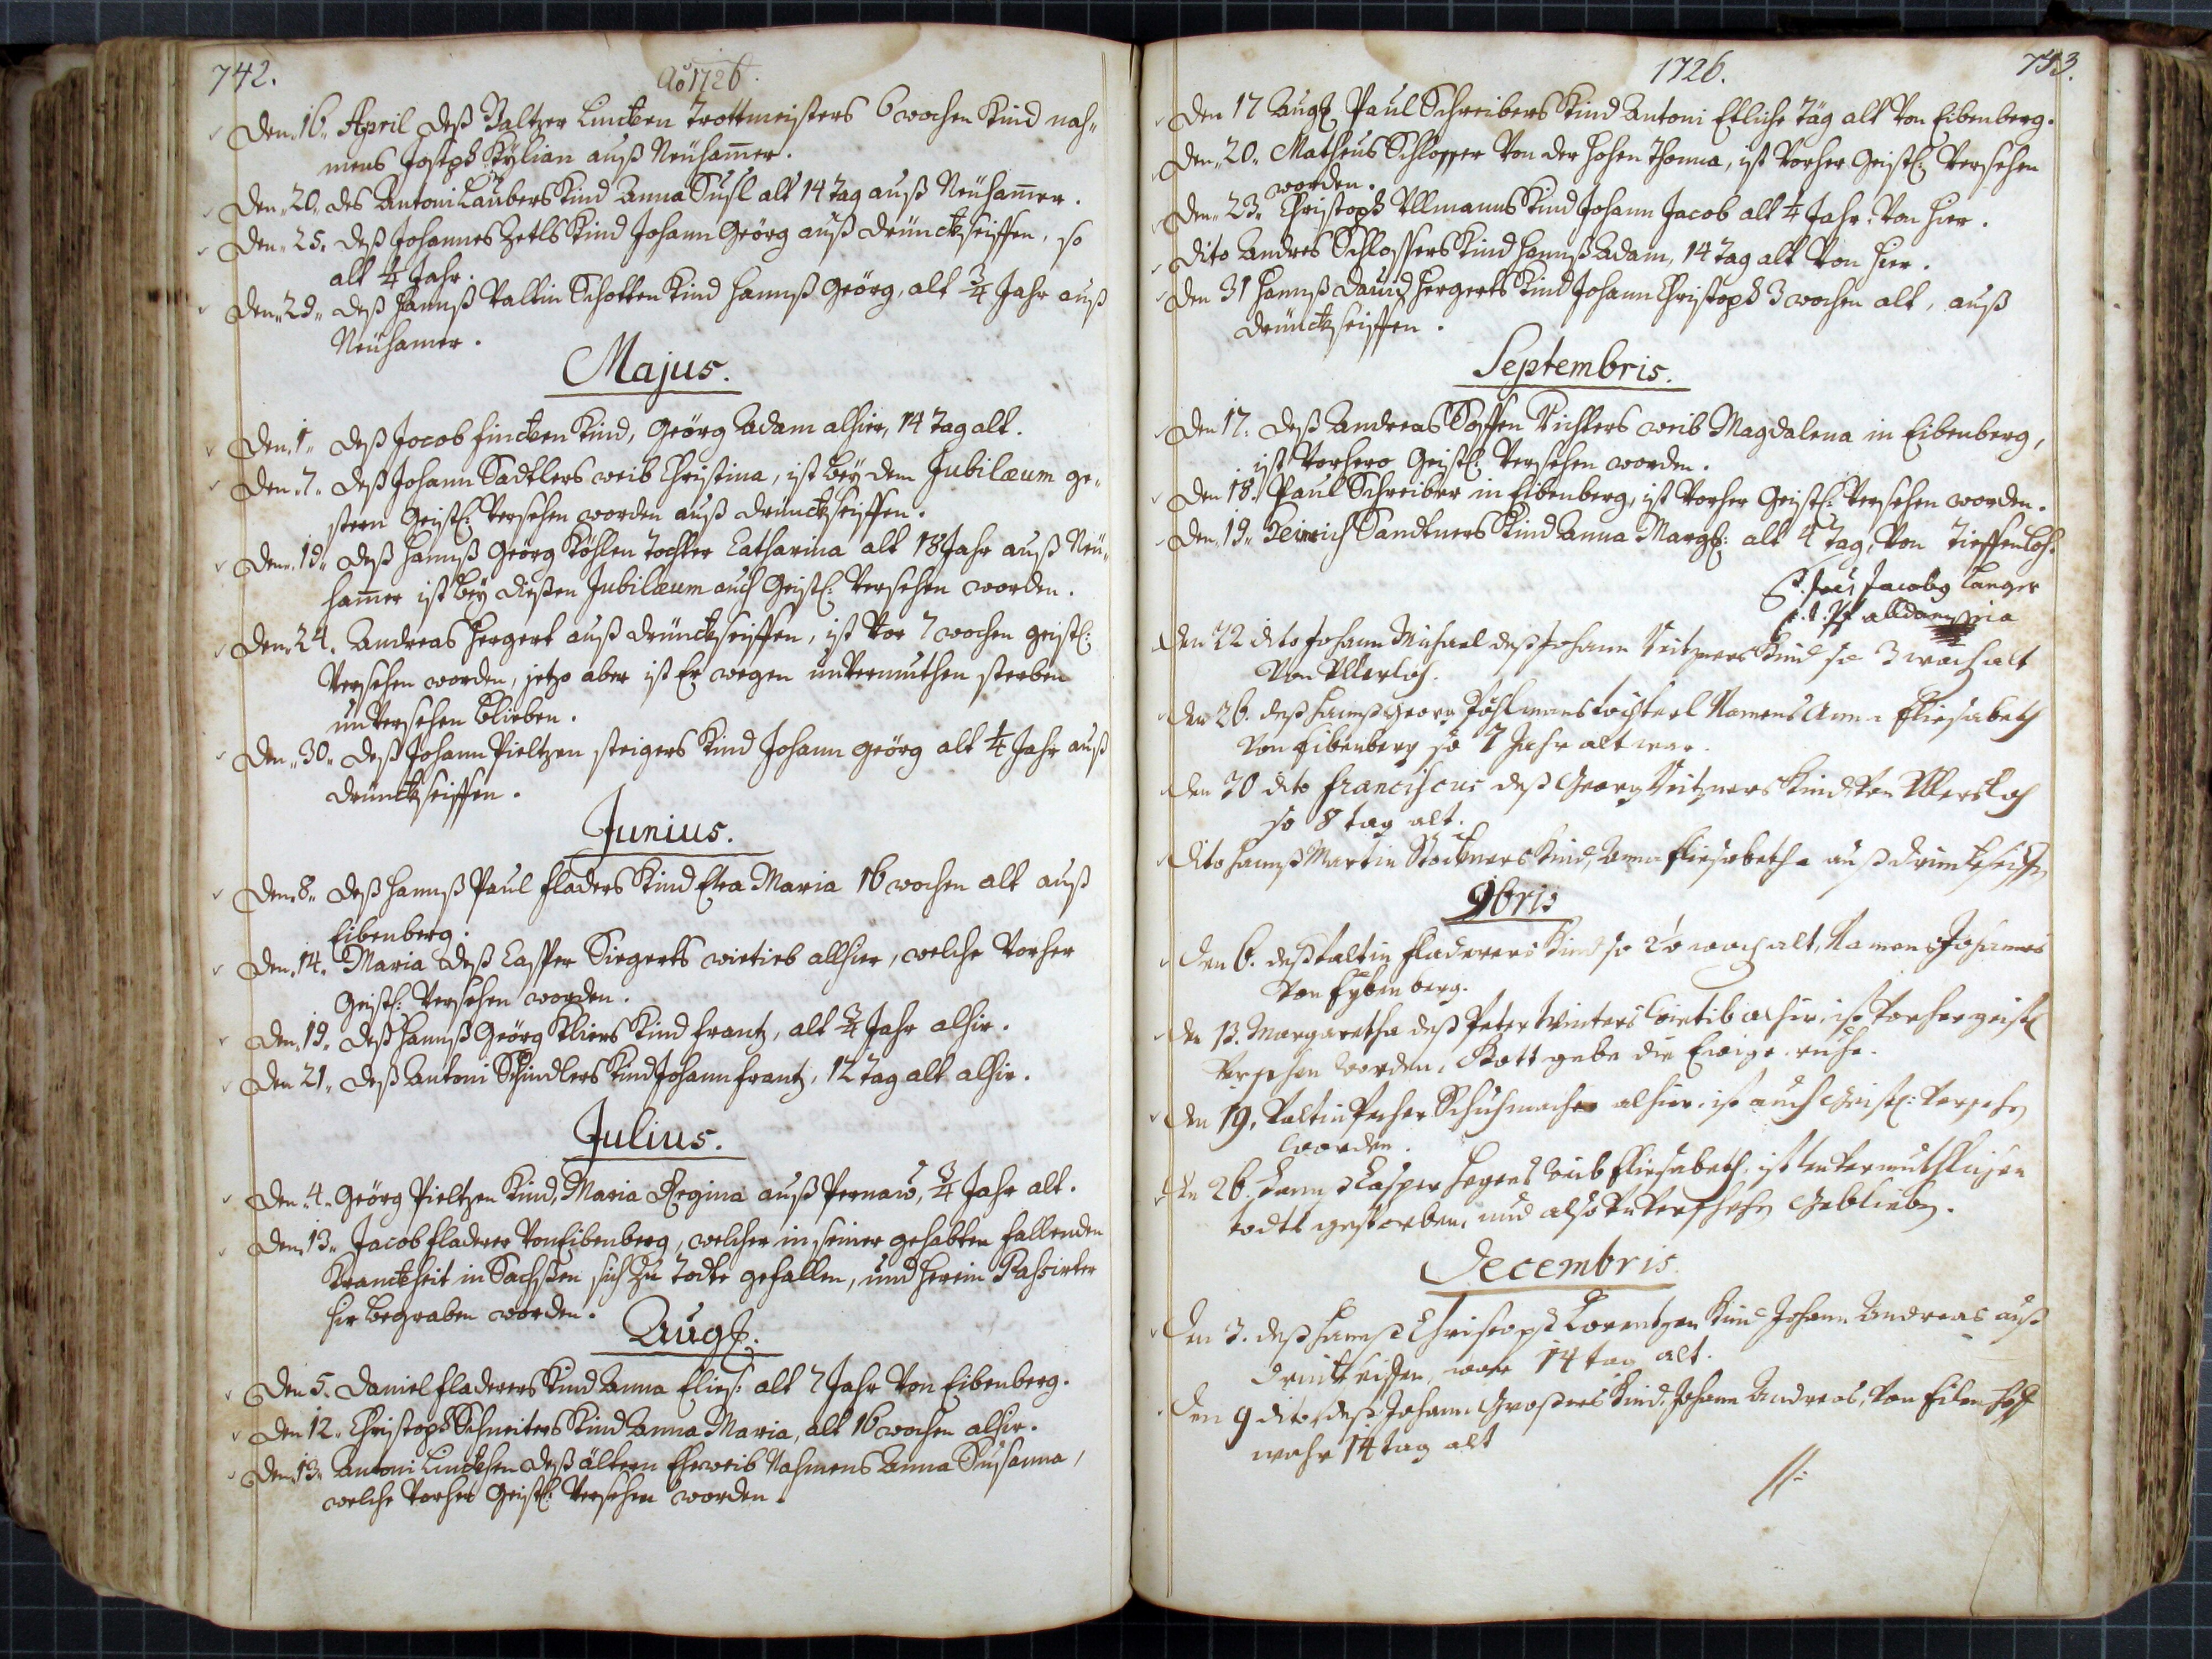 742.
Ao 1726.
Den 16. April deß Baltzer Lincken Trottmeisters 6 wochen Kind nah-
mens Joseph Kylian auß Neühamer.
Den 20. des Antoni Laubers Kind Anna Susl alt 14 tag auß Neühamer.
Den 25. deß Johannes Zetls Kind Johann Geörg auß Drünckseiffen, so
alt ¼ Jahr.
Den 29. deß Hannß Valtin Schotten Kind Hannß Geörg, alt ¾ Jahr auß
Neühamer.
Majus.
Den 1. deß Jocob Fincken Kind, Geörg Adam alhier, 14 tag alt.
Den 7. deß Johann Sadtlers weib Christina, ist bey dem Jubilæum ge-
stern Geistl: Versehen worden auß Drünckseiffen.
Den 19. deß Hannß Geörg Köhlen Tochter Catharina alt 18 Jahr auß Neü-
hamer ist bey dießen Jubilæum auch Geistl: Versehen worden.
Den 24. Andreas Hergert auß Drünckseiffen, ist Vor 7 wochen geistl:
Versehen worden, jetzo aber ist Er wegen unVermuthen sterben
unVersehen blieben.
Den 30. deß Johann Pieltzen steigers Kind Johann Geörg alt ¼ Jahr auß
Drünckseiffen.
Junius.
Den 8. deß Hannß Paul Fladers Kind Eva Maria 16 wochen alt auß
Eibenberg.
Den 14. Maria deß Casper Siegerts wietieb allhier, welche Vorher
Geistl: Versehen worden.
Den 19. deß Hannß Geörg Kliers Kind Frantz, alt ¾ Jahr alhir.
Den 21. deß Antoni Schindlers Kind Johann Frantz, 12 tag alt alhir.
Julius.
Den 4. Geörg Pieltzen Kind, Maria Regina auß Pernau, ¾ Jahr alt.
Den 13. Jacob Fladerer Von Eibenberg, welcher in seiner gehabten fallenden
Kranckheit in Sachßen sich zu Todte gefallen, und herein Passirter
hir begraben worden.
Aug:
Den 5. Daniel Fladerers Kind Anna Elies: alt 7 Jahr Von Eibenberg.
Den 12. Christoph Schneiters Kind Anna Maria, alt 16 wochen alhir.
Den 13. Antoni Linckhen deß ältern Eheweib Nahmens Anna Susanna,
welche Vorher Geistl: Versehen worden.
1726.
743.
Den 17 Aug: Paul Schreibers Kind Antoni Etliche täg alt Von Eibenberg.
Den 20. Matheus Schlosser Von der hohen Thonna, ist Vorher Geistl: Versehen
worden.
Den 23. Christoph Ullmanns Kind Johann Jacob alt ¼ Jahr Von hier.
Dito Andres Schlossers Kind Hannß Adam, 14 tag alt Von hier.
Den 31 Hannß David Hergerts Kind Johann Christoph 3 wochen alt, auß
Drünckseiffen.
Septembris.
Den 17. deß Andreas Richters weib Magdalena in Eibenberg,
ist Vorhero Geistl: Versehen worden.
Den 18. Paul Schreiber in Eibenberg, ist Vorher Geistl: Versehen worden.
Den 19. Heinrich Sandtners Kind Anna Marg: alt 4 tag, Von Tieffenloh.
Jacobg Langer
Den 22 dito Johann Michael deß Johann Kind so 3 woch alt
Von Ullerloh.
Den 26. deß Hannß Georg Pöhlmans töchterl Namens Anna Eliesabeth
Von Eibenberg so 7 Jahr alt war.
Den 30 dito Franciscus deß Georg Kind Von Ullersloh
so 8 tag alt.
Dito Hannß Martin Stöckners Kind, Anna Eliesabetha auß Drünckseiffen
9bris
Den 6. deß Valtin Fladerers Kind so woch alt, Namens Johannes
Von Eybenberg.
Den 13. Margaretha deß Peter Winters wietib alhir, ist Vorher geistl
Versehen worden, Gott gebe die Ewige ruhe.
Den 19. Valtin Pecher Schuhmacher alhier, ist auch Geistl: Versehen
worden.
Den 26. Casper Hegers weib Eliesabeth, ist unVermuthlichen
todts gestorben, und also unVersehen Geblieben.
Decembris
Den 3. deß Hannß Christoph Lorentzen Kind Johann Andreas auß
Drinkseiffen, war 14 tag alt.
Den 9 dito deß Johann Großers Kind, Johann Andreas, Von
wahr 14 tag alt